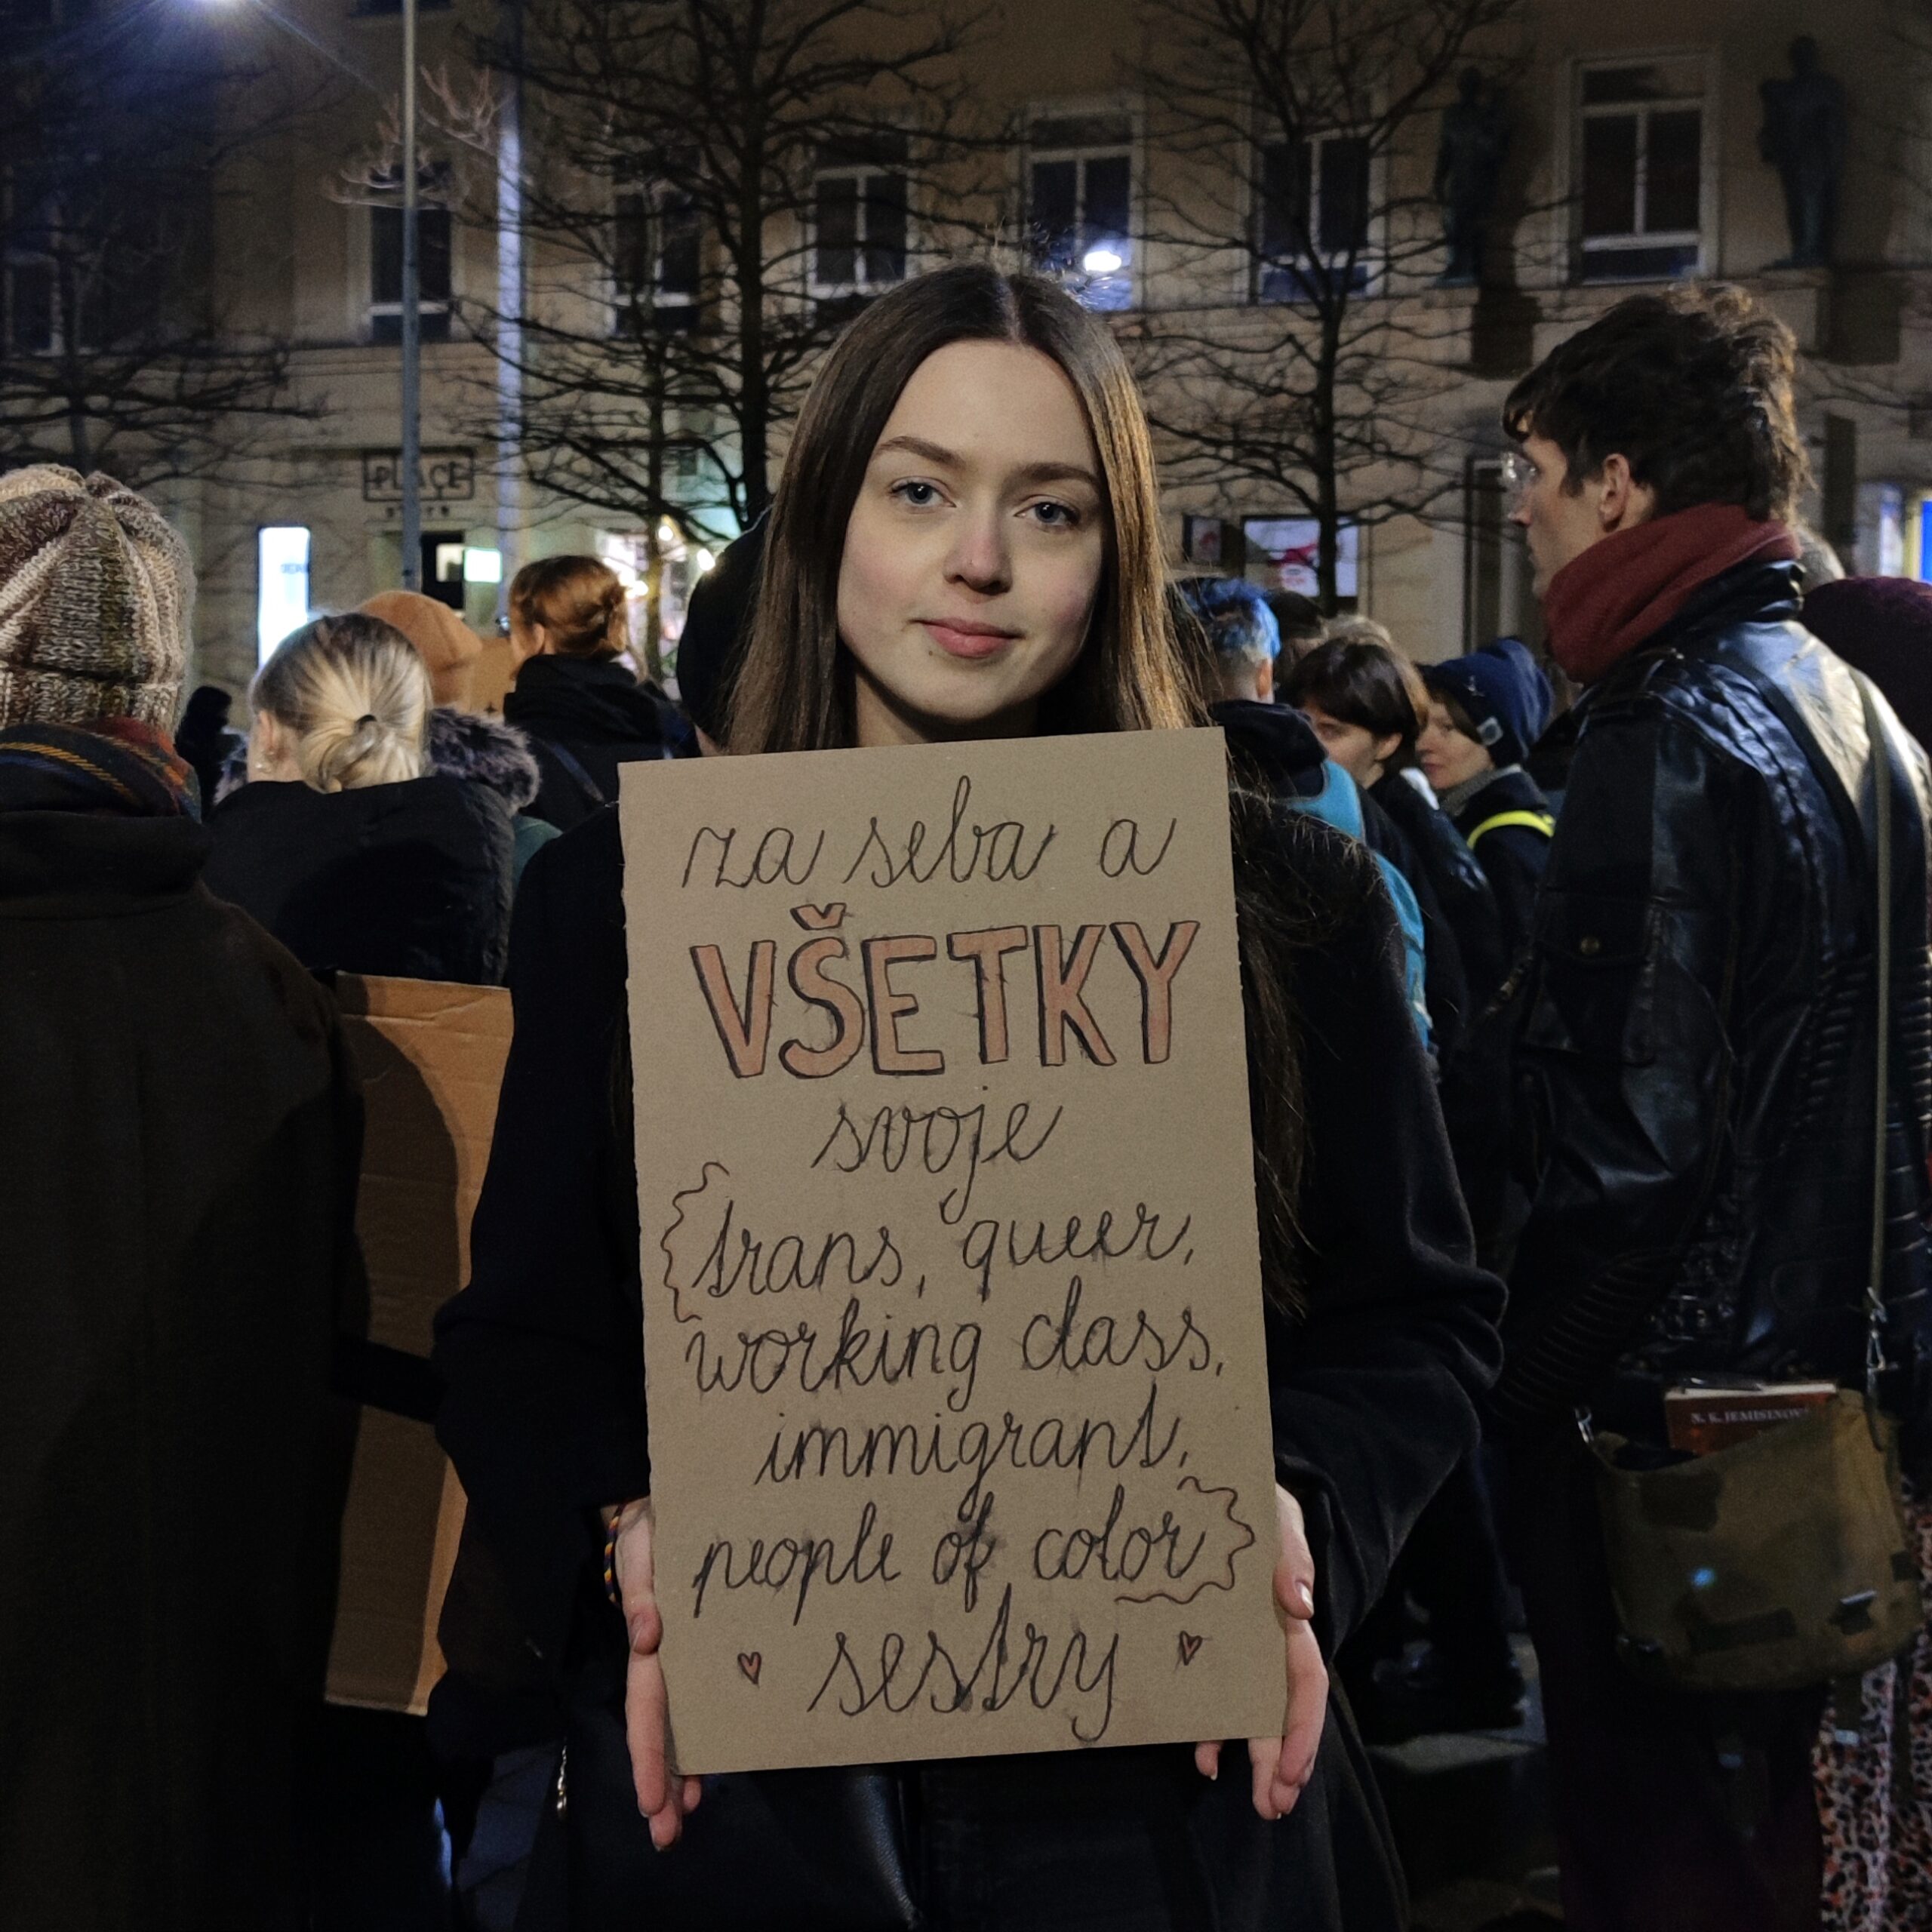 PLACE
STORE
za seba a
VŠETKY
svoje
trans, queer,
working class,
immigrant,
people of color
sestry
N. K. JEMISINOVÁ